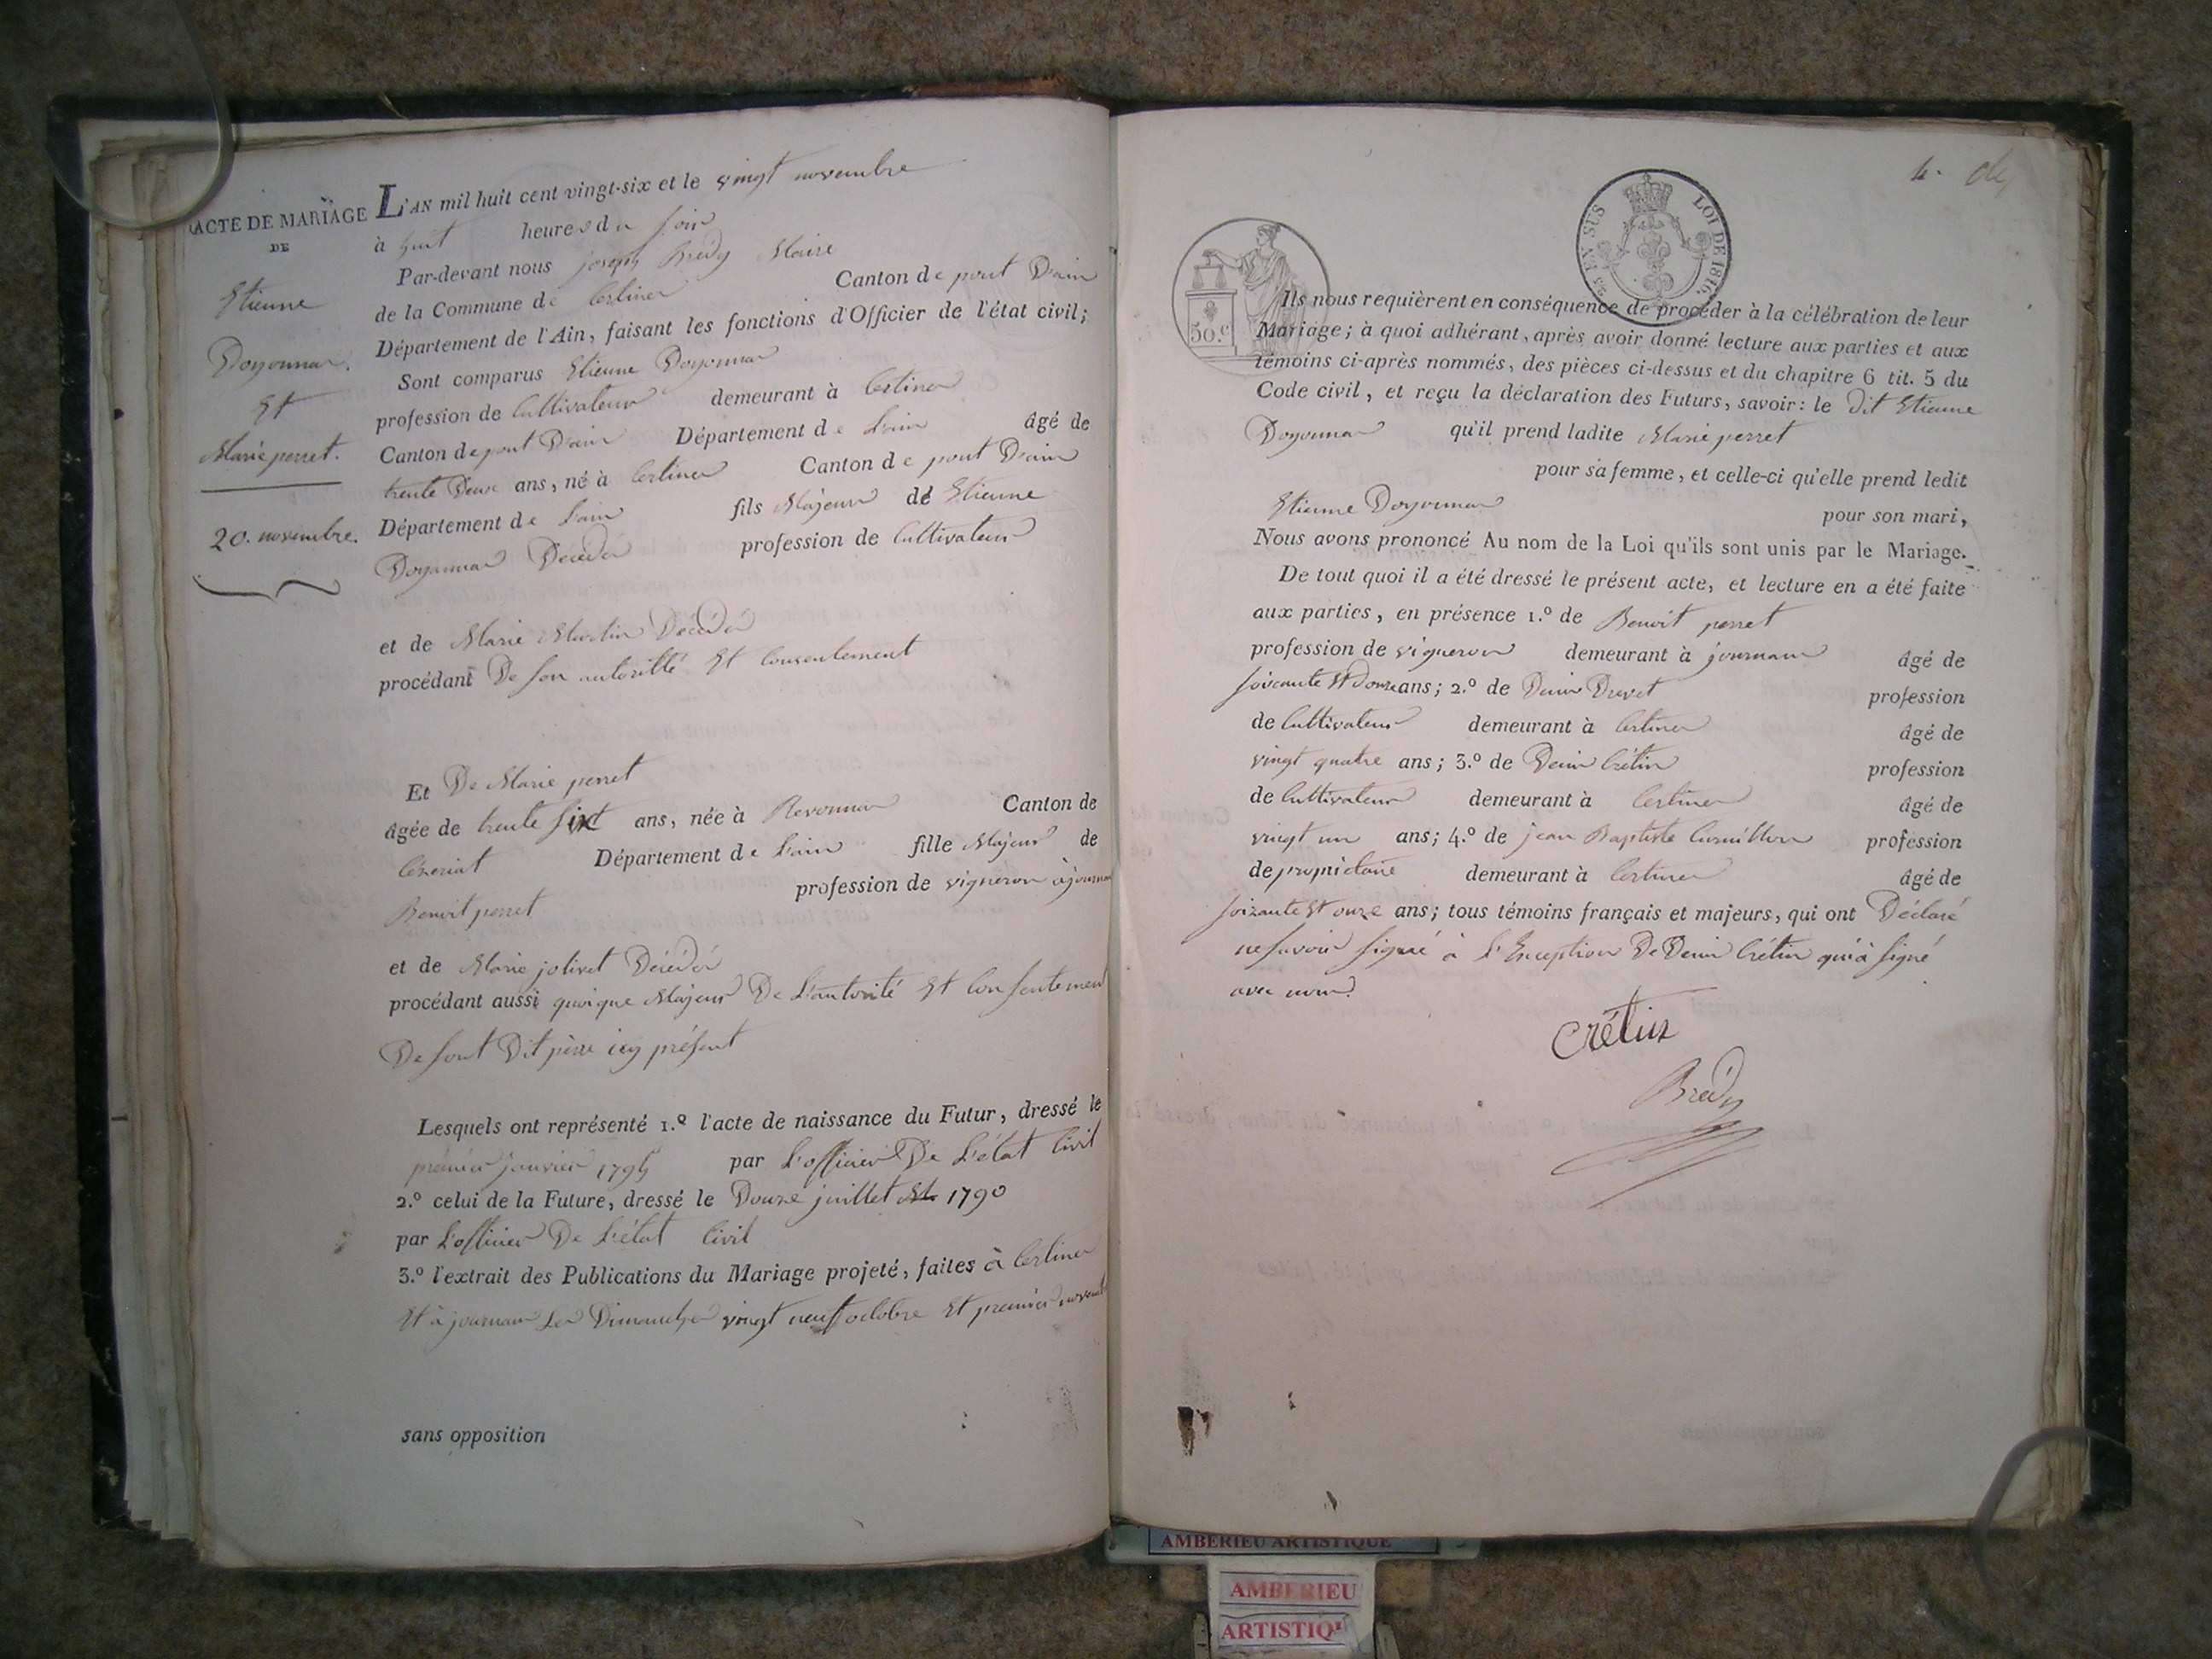 ACTE DE MARIAGE
DE
Etienne
Doyonnas.
Et
Marie perret.
20. novembre.
L'AN mil huit cent vingt-six et le vingt novembre
à huit heures du soir
Par-devant nous joseph Bredy Maire
de la Commune de Certines Canton de pont Dain
Département de l'Ain, faisant les fonctions d'Officier de l'état civil;
Sont comparus Etienne Doyonnas
profession de Cultivateur demeurant à Certines
Canton de pont Dain Département de L'ain âgé de
trente Deux ans, né à Certines Canton de pont Dain
Département de L'ain fils Majeur de Etienne
Doyonnas Décédé profession de Cultivateur
et de Marie Martin Décédé
procédant De son autoritté Et Consentement
Et De Marie perret
âgée de trente Six ans, née à Revonnas Canton de
Cézeriat Département de L'ain fille Majeur de
Benoit perret profession de vigneron à journans
et de Marie jolivet Décédé
procédant aussi quoique Majeur De L'autorité Et Consentement
De sont Dit père icy présent
Lesquels ont représenté 1.º l'acte de naissance du Futur, dressé le
premier janvier 1795 par L'officier De L'état Civil
2.º celui de la Future, dressé le Douze juillet 1790
par L'officier De L'état Civil
3.º l'extrait des Publications du Mariage projeté, faites à Certines
Et à journans Les Dimanches vingt neuf octobre Et premier novembre
sans opposition
4.
EN SUS LOI DE 1816.
50.c
Ils nous requièrent en conséquence de procéder à la célébration de leur
Mariage; à quoi adhérant, après avoir donné lecture aux parties et aux
témoins ci-après nommés, des pièces ci-dessus et du chapitre 6 tit. 5 du
Code civil, et reçu la déclaration des Futurs, savoir: le dit Etienne
Doyonnas qu'il prend ladite Marie perret
pour sa femme, et celle-ci qu'elle prend ledit
Etienne Doyonnas pour son mari,
Nous avons prononcé Au nom de la Loi qu'ils sont unis par le Mariage.
De tout quoi il a été dressé le présent acte, et lecture en a été faite
aux parties, en présence 1.º de Benoit perret
profession de vigneron demeurant à journans âgé de
soixante Et Douze ans; 2.º de Denis Drevet profession
de Cultivateur demeurant à Certines âgé de
vingt quatre ans; 3.º de Denis Crétin profession
de Cultivateur demeurant à Certines âgé de
vingt un ans; 4.º de jean Baptiste Curnillon profession
de propriétaire demeurant à Certines âgé de
soixante Et onze ans; tous témoins français et majeurs, qui ont Déclaré
ne savoir signé à L'Exception De Denis Crétin qui à signé
avec nous.
crétin
Bredy
AMBERIEU ARTISTIQUE
AMBERIEU
ARTISTIQ